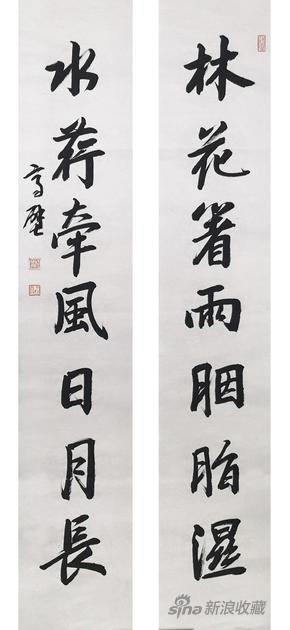 林花著雨胭脂濕
水荇牽風日月長
高壁
sina 新浪收藏